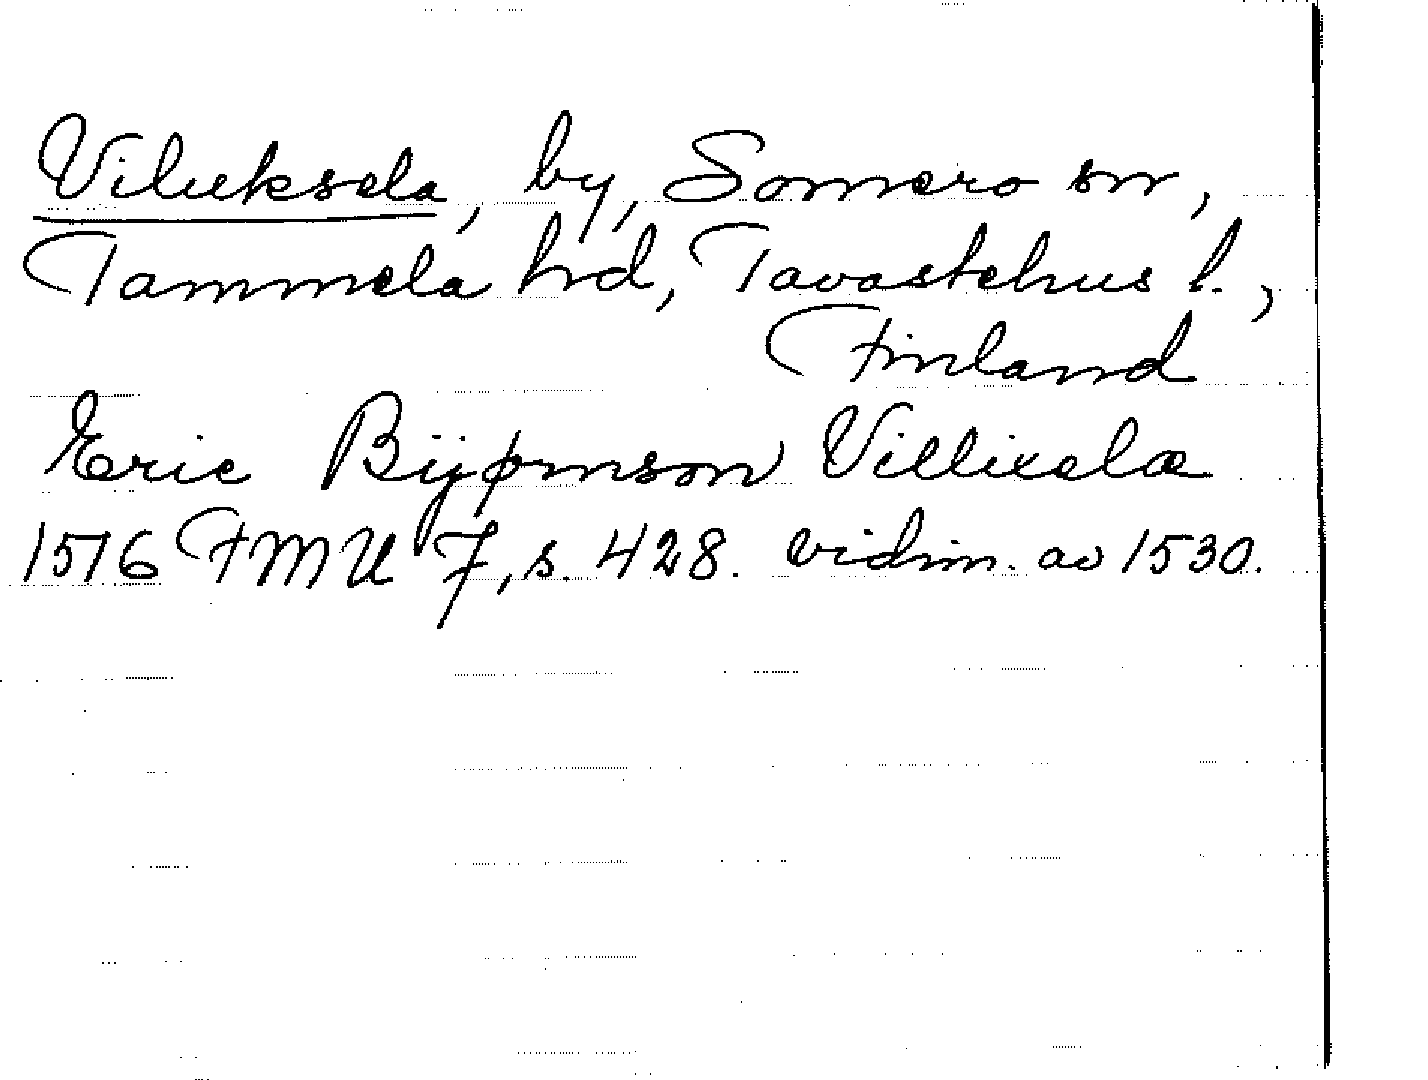 Viluksela, by, Somero sn,
Tammela hd, Tavastehus l.,
Finland
Eric Bijørnson Villixela
1516 FMU 7, s. 428. vidim. av 1530.